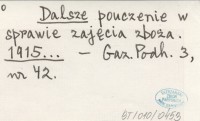 Dalsze pouczenie w
sprawie zajęcia zboża.
1915... — Gaz. Podh. 3,
nr 42.
BT/010/0459